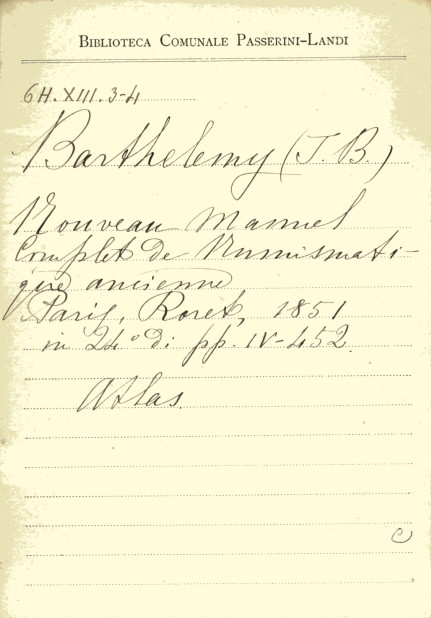 BIBLIOTECA COMUNALE PASSERINI-LANDI
6H.XIII.3-4
Barthelemy (J. B.)
Nouveau Manuel
Complet de Numismati-
que ancienne
Paris, Roret, 1851
in 24° di pp. IV-452.
Atlas.
C